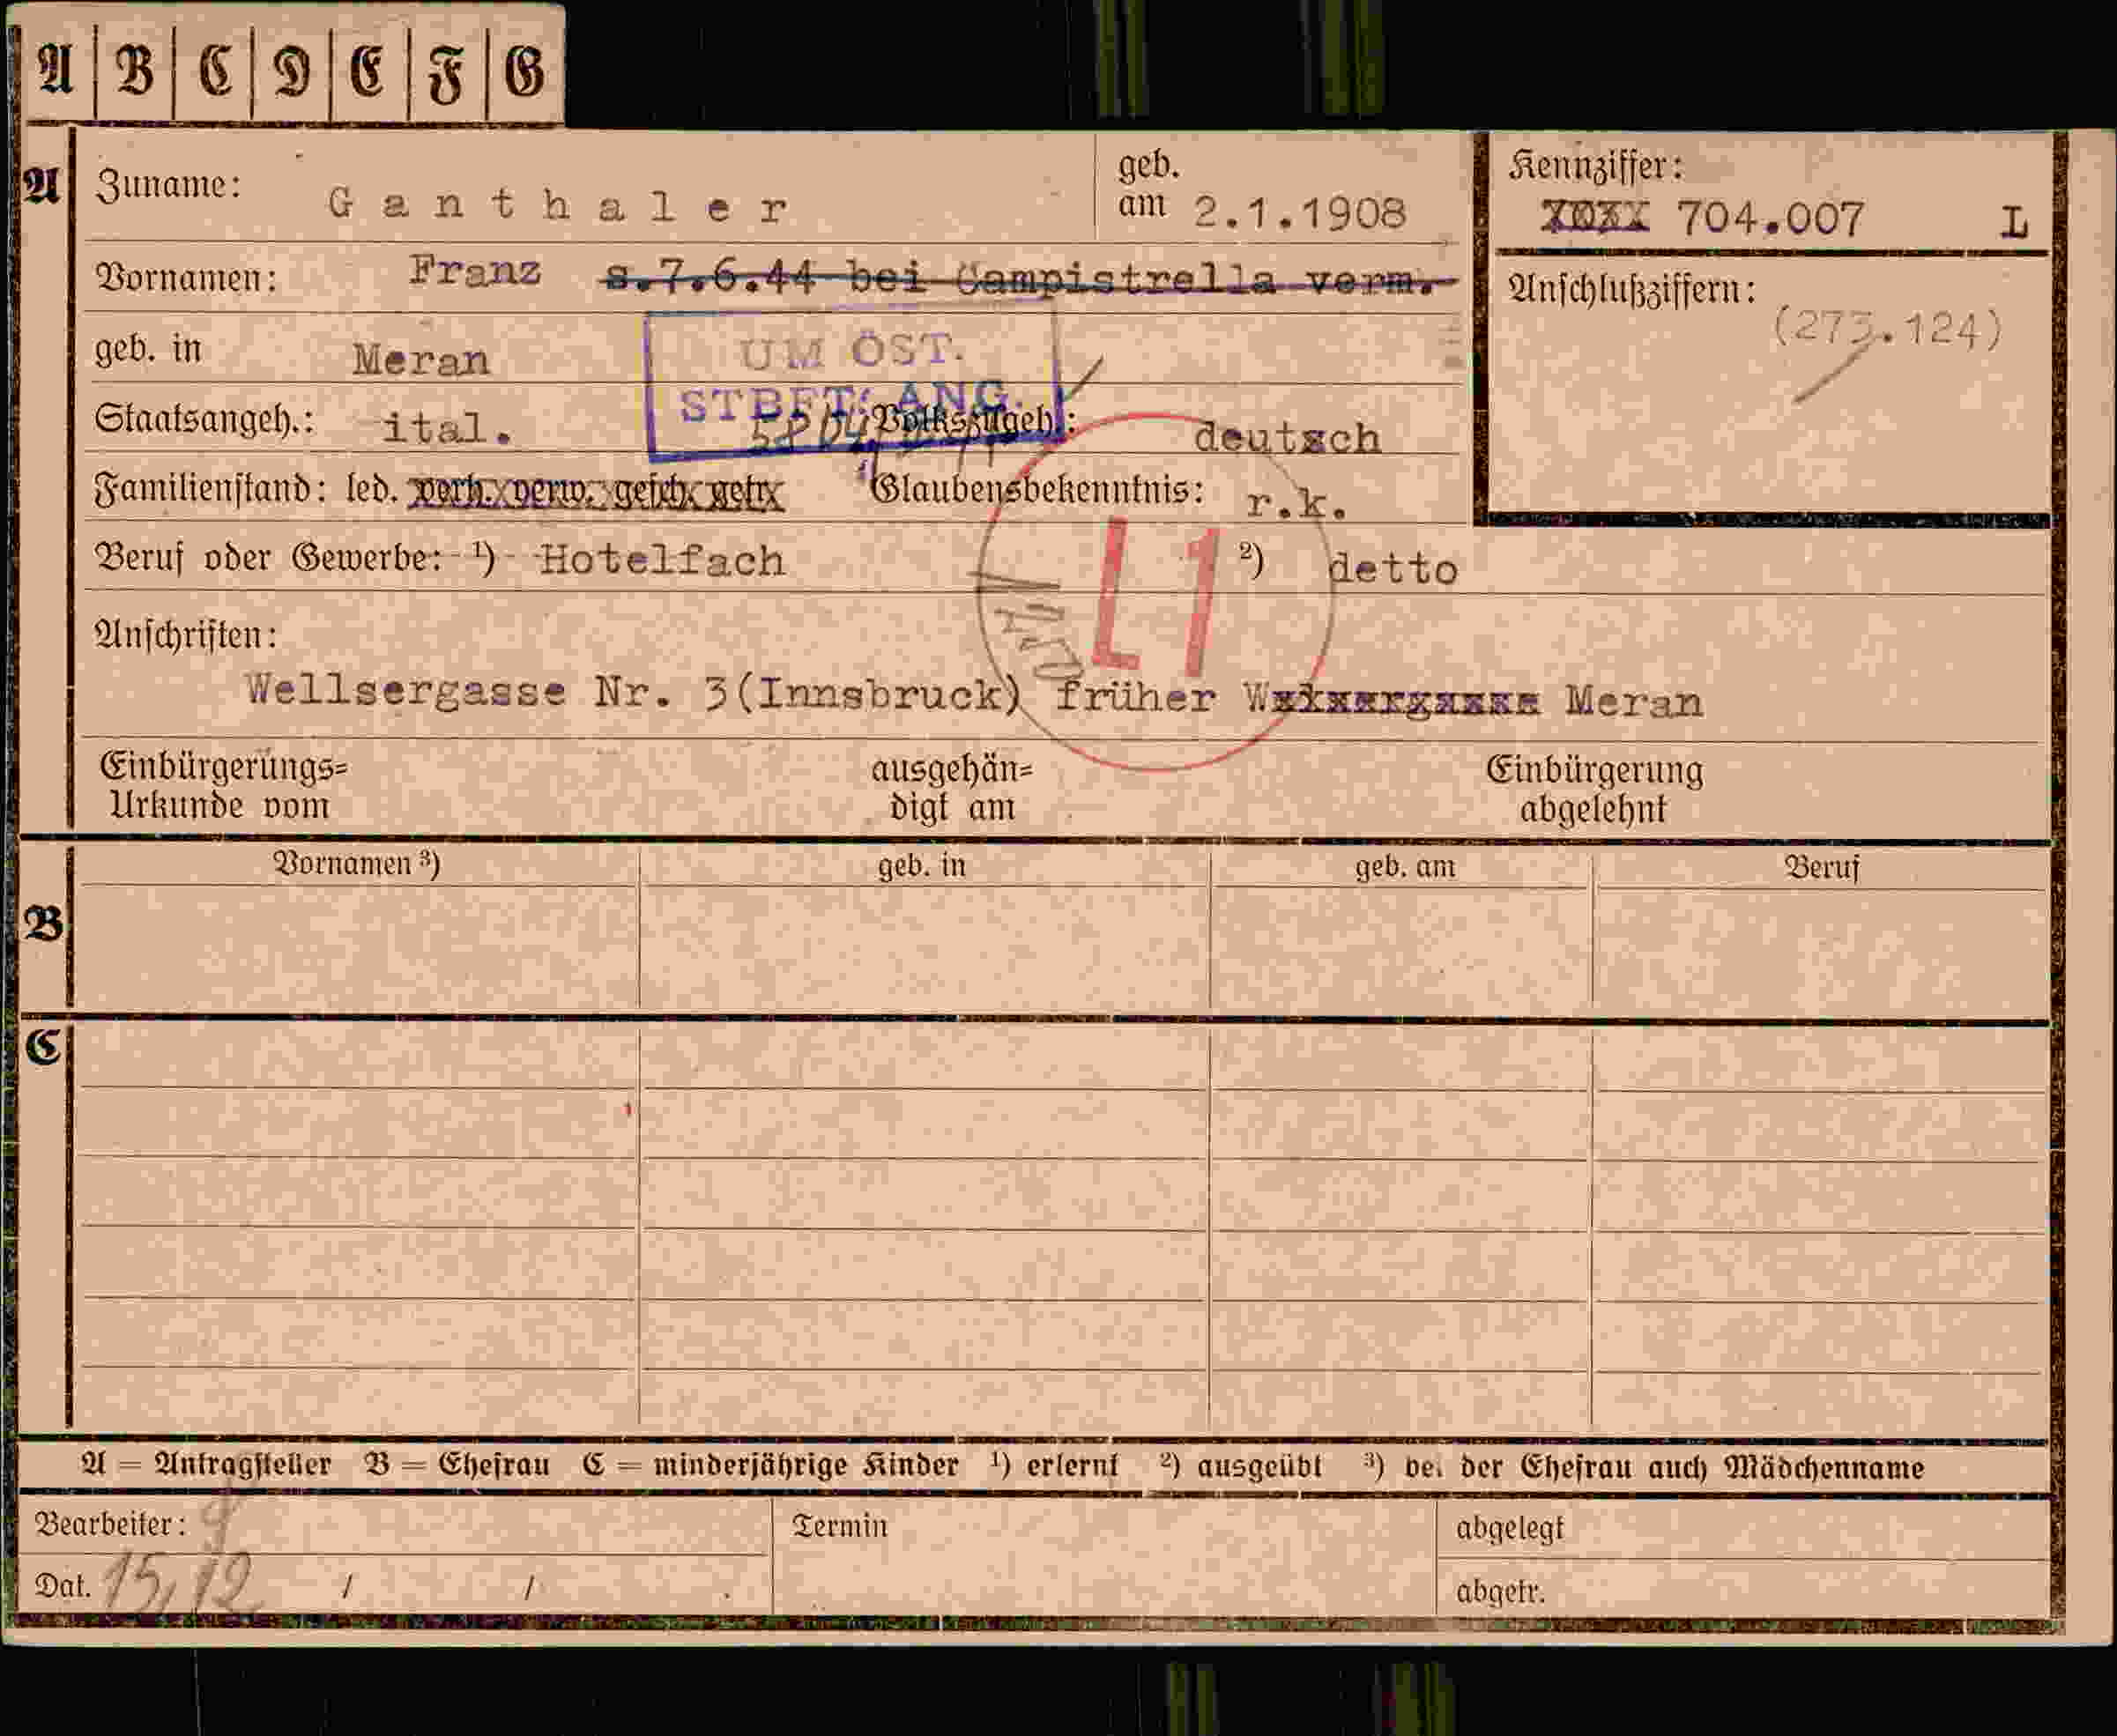 A B C D E F G
A Zuname: Ganthaler geb. am 2.1.1908 Kennziffer: 704.007 L
Vornamen: Franz s.7.6.44 bei Campistrella verm. Anschlußziffern: (273.124)
geb. in Meran UM ÖST.
STBFT. ANG.
Staatsangeh.: ital. Volkszugeh.: deutsch
Familienstand: led. verh. verw. gesch. getr. Glaubensbekenntnis: r.k.
Beruf oder Gewerbe: ¹) Hotelfach ²) detto
L1
Anschriften:
Wellsergasse Nr. 3(Innsbruck) früher Meran
Einbürgerungs=
Urkunde vom
ausgehän=
digt am
Einbürgerung
abgelehnt
B Vornamen ³) geb. in geb. am Beruf
C
A = Antragsteller B = Ehefrau C = minderjährige Kinder ¹) erlernt ²) ausgeübt ³) bei der Ehefrau auch Mädchenname
Bearbeiter: Termin abgelegt
Dat. 15/12 / / . abgetr.